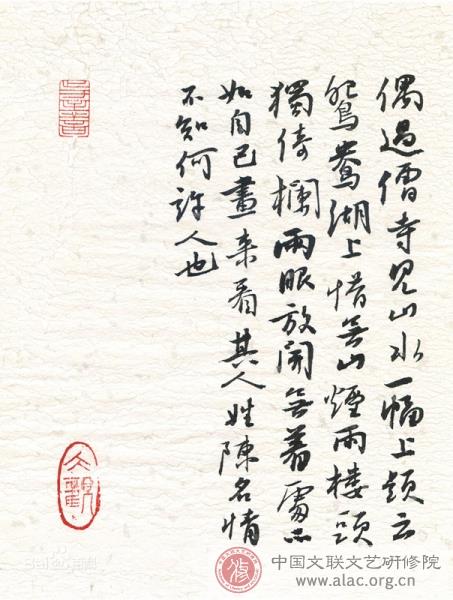 偶過僧寺見山水一幅上題云
鴛鴦湖上惜無山煙雨樓頭
獨倚欄兩眼放開無着處不
如自己畫来看其人姓陳名情
不知何許人也
Baidu百科
中国文联文艺研修院
www.alac.org.cn